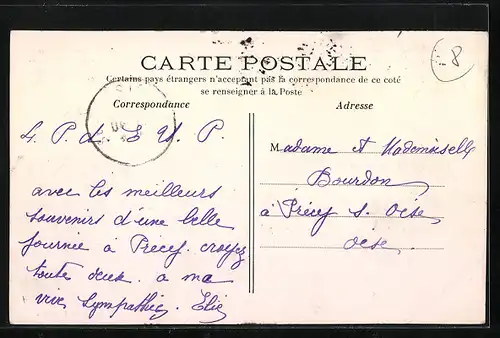 8
CARTE POSTALE
Certains pays étrangers n'acceptant pas la correspondance de ce coté
se renseigner à la Poste
Correspondance
Adresse
Madame et Mademoiselle
Bourdon
à Précy s. Oise
Oise.
avec les meilleurs
souvenirs d'une belle
journée à Precy. croyez
toute deux. a ma
vive Sympathie. Elie